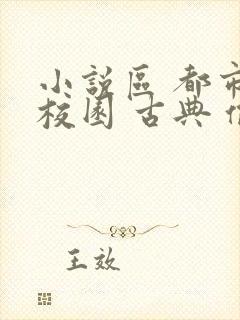 小說區 都市
校園 古典
王效